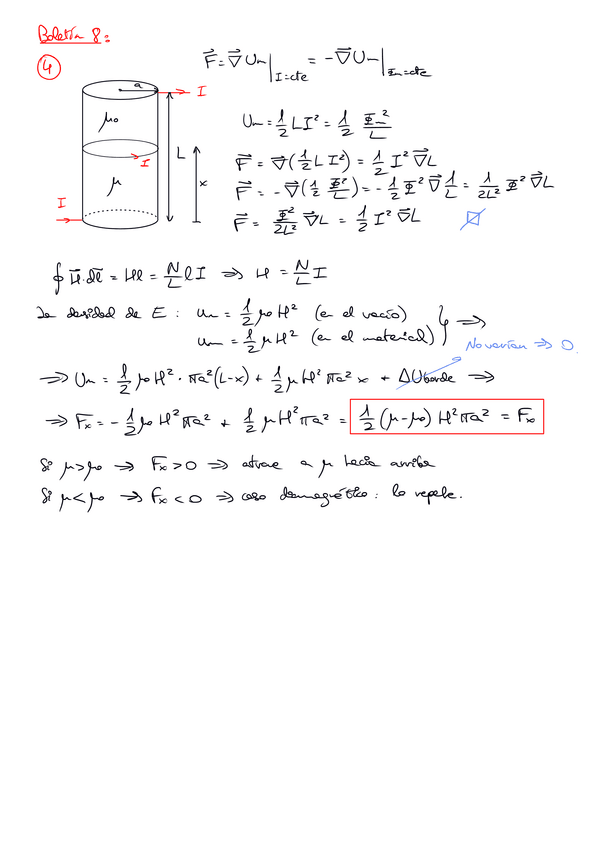 Boletín 8:
4
F⃗ = ∇⃗Um|I=cte = -∇⃗Um|Φm=cte
a
I
μ₀
I
L
x
μ
I
Um = 1/2 LI² = 1/2 Φm²/L
F⃗ = ∇⃗(1/2 L I²) = 1/2 I² ∇⃗L
F⃗ = -∇⃗(1/2 Φ²/L) = -1/2 Φ² ∇⃗ 1/L = 1/2L² Φ² ∇⃗L
F⃗ = Φ²/2L² ∇⃗L = 1/2 I² ∇⃗L
∮ H⃗·dl⃗ = Hl = N/L l I ⇒ H = N/L I
La densidad de E : um = 1/2 μ₀ H² (en el vacío)
um = 1/2 μ H² (en el material) } ⇒
No varían ⇒ 0.
⇒ Um = 1/2 μ₀ H² · πa²(L-x) + 1/2 μ H² πa² x + ΔUborde ⇒
⇒ Fx = -1/2 μ₀ H² πa² + 1/2 μ H² πa² = 1/2 (μ-μ₀) H² πa² = Fx
Si μ>μ₀ → Fx>0 ⇒ atrae a μ hacia arriba
Si μ<μ₀ → Fx<0 ⇒ caso diamagnético: lo repele.